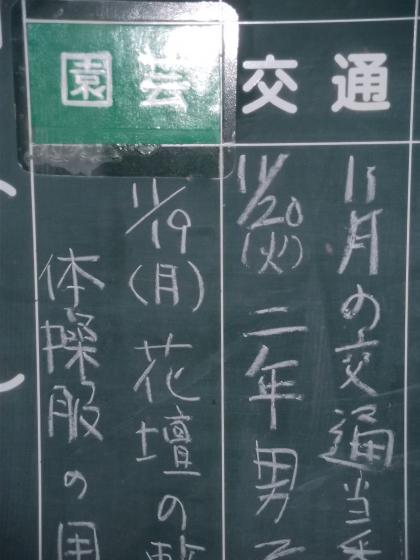 交通
11月の交通当番
11/20(火)二年男子
園芸
11/19(月)花壇の
体操服の用